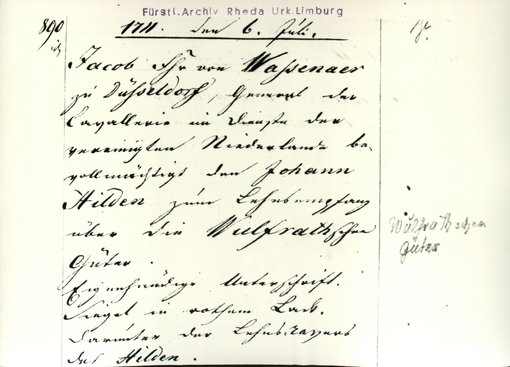 Fürstl. Archiv Rheda Urk. Limburg
890
1711. den 6. Juli.
Jacob Fhr von Waßenaer
zu Düsseldorf, General der
Cavallerie im Dienste der
vereinigten Niederlande be-
vollmächtigt den Johann
Hilden zum Lehnsempfang
über die Wülfrathschen
Güter.
Eigenhändige Unterschrift.
Siegel in rothem Lack.
Darunter der Lehnsrevers
des Hilden.
Wülfrathschen
Güter